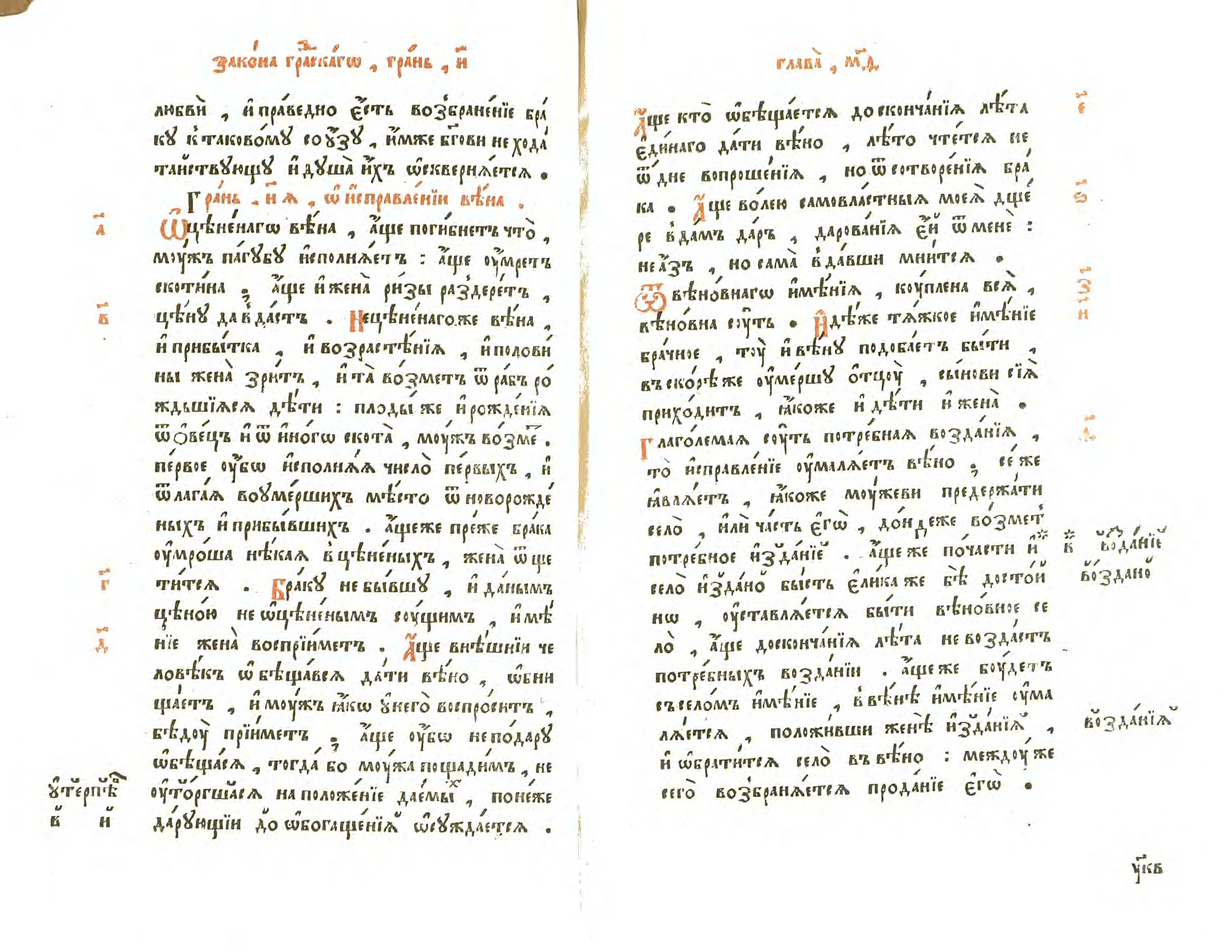 зако́на гра́скагѡ , гра́нь , и҃
любвѝ , и҆ пра́ведно є҆́сть возбране́нїе бра́
кꙋ к̾таково́мꙋ сою́зꙋ , и҆́мже бг҃ови не хода́
та́йствꙋющꙋ и҆ дꙋша̀ и҆́хъ ѡ҆скверня́ется .
Гра́нь . и҃ ꙗ , ѡ҆ и҆справле́нїи вѣ́на .
а҃
Ѿцѣне́нагѡ вѣ́на , а҆́ще поги́бнетъ что̀ ,
мо́ужъ па́гꙋбꙋ и҆сполня́етъ : а҆́ще оу҆́мретъ
скоти́на ; а҆́ще и҆ жена̀ ри́зы раздере́тъ ,
в҃
цѣ́нꙋ да в̾да́стъ . Нецѣне́наго же вѣ́на ,
и҆ прибы́тка , и҆ возрасте́нїя , и҆ полови́
ны жена̀ зри́тъ , и҆ та̀ во́зметъ ѿ ра́бъ ро́
ждьшїяся дѣ́ти : плоды́ же и҆ рожде́нїя
ѿ ѻ҆ве́цъ и҆ ѿ и҆но́гѡ скота̀ , мо́ужъ во́зме .
пе́рвое оу҆́бѡ и҆сполня́я число̀ пе́рвыхъ , и҆
ѿлага́я воуме́ршихъ мѣ́сто ѿ новорожде́
ныхъ и҆ прибы́вшихъ . а҆́щеже пре́же бра́ка
оу҆мро́ша нѣ́кая в̾цѣне́ныхъ , жена̀ ѿще
г҃
ти́тся . Бра́кꙋ не бы́вшꙋ , и҆ да́нымъ
цѣно́ю не ѡ҆цѣне́нымъ со́ущимъ , и҆мѣ́
д҃
нїе жена̀ воспрїи́метъ . А҆́ще внѣ́шнїи че
ловѣ́къ ѡ҆бѣща́вся да́ти вѣ́но , ѡ҆бни
ща́етъ , и҆ мо́ужъ ꙗ҆́кѡ ᲂу҆него̀ воспро́ситъ ,
бѣдо́у прїи́метъ ; а҆́ще оу҆́бѡ не подарꙋ̀
ѡ҆бѣща́ся , тогда́ бо мо́ужа пощади́мъ , не
оу҆то́ргшася на положе́нїе дае́мы х , поне́же
да́рꙋющїи до ѡ҆богаще́нїя ѡ҆сꙋжда́ется .
в҃ и҃
глава̀ , м҃д
є҃
А҆́ще кто̀ ѡ҆бѣща́ется до сконча́нїя лѣ́та
є҆ди́наго да́ти вѣ́но , лѣ́то чте́тся не
ѿ дне вопроше́нїя , но ѿ сотворе́нїя бра́
ѕ҃
ка . А҆́ще во́лею самовла́стныя моея̀ дще́
ре в̾да́мъ да́ръ , дарова́нїя є҆́й ѿ менѐ :
не а҆́зъ , но сама̀ в̾да́вши мни́тся .
з҃
Ѿ вѣно́внагѡ и҆мѣ́нїя , ко́уплена вся̀ ,
и҃
вѣно́вна со́уть . И҆дѣ́же тя́жкое и҆мѣ́нїе
бра́чное , то́у и҆ вѣ́нꙋ подоба́етъ бы́ти ,
въ ско́рѣ же оу҆ме́ршꙋ ѻ҆тцо́у , сы́нови сїя̀
прихо́дитъ , ꙗ҆́коже и҆ дѣ́ти и҆ жена̀ .
Глаго́лемая со́уть потре́бная возда́нїя ,
то̀ и҆справле́нїе оу҆маля́етъ вѣ́но ; се́ же
ꙗ҆вля́етъ , ꙗ҆́коже мо́ужеви предержа́ти
село̀ , и҆лѝ ча́сть є҆гѡ̀ , до́ндеже во́змет
потре́бное и҆зда́нїе . а҆́ще же по ча́сти и҆
в҃ возда́нїе
село̀ и҆́здано бы́сть є҆ли́ка же бѣ̀ досто́й
во́здано
нѡ , оу҆ставля́ется бы́ти вѣно́вное се
ло̀ , а҆́ще до сконча́нїя лѣ́та не возда́стъ
потре́бныхъ возда́нїи . а҆́ще же бо́удетъ
съ село́мъ и҆мѣ́нїе , в̾вѣ́нѣ и҆мѣ́нїе оу҆ма
ля́ется , положи́вши женѣ̀ и҆зда́нїя ,
возда́нїя
и҆ ѡ҆брати́тся село̀ въ вѣ́но : между́ же
сего̀ возбраня́ется прода́нїе є҆гѡ̀ .
ук҃в